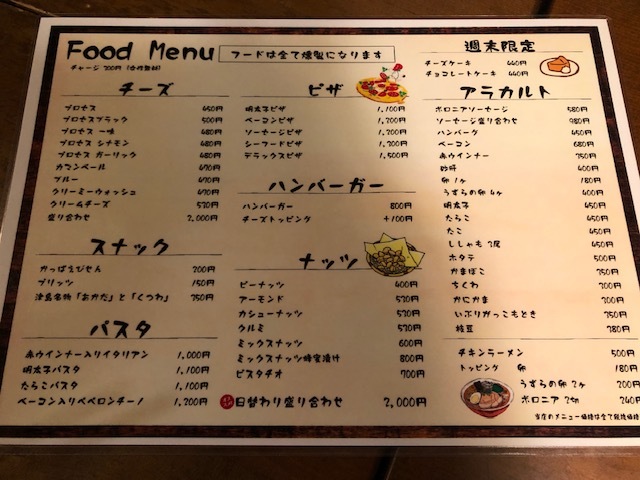 Food Menu
フードは全て燻製になります
チーズ
プロセス 450円
プロセスブラック 500円
プロセス 一味 480円
プロセス シナモン 480円
プロセス ガーリック 480円
カマンベール 470円
ブルー 470円
クリーミーウォッシュ 470円
クリームチーズ 570円
盛り合わせ 2,000円
スナック
かっぱえびせん 200円
プリッツ 150円
津島名物「あかだ」と「くつわ」 350円
パスタ
赤ウインナー入りイタリアン 1,000円
明太子パスタ 1,100円
たらこパスタ 1,100円
ベーコン入りペペロンチーノ 1,200円
ピザ
明太子ピザ 1,100円
ベーコンピザ 1,200円
ソーセージピザ 1,200円
シーフードピザ 1,200円
デラックスピザ 1,500円
ハンバーガー
ハンバーガー 800円
チーズトッピング +100円
ナッツ
ピーナッツ 400円
アーモンド 530円
カシューナッツ 530円
クルミ 530円
ミックスナッツ 600円
ミックスナッツ蜂蜜漬け 800円
ピスタチオ 700円
日替わり盛り合わせ 2,000円
週末限定
チーズケーキ 440円
チョコレートケーキ 440円
アラカルト
ボロニアソーセージ 580円
ソーセージ盛り合わせ 980円
ハンバーグ 450円
ベーコン 680円
赤ウインナー 350円
砂肝 400円
卵 1ヶ 180円
うずらの卵 4ヶ 400円
明太子 450円
たらこ 450円
たこ 450円
ししゃも 3尾 450円
ホタテ 500円
かまぼこ 350円
ちくわ 300円
かにかま 300円
いぶりがっこもとき 350円
枝豆 380円
チキンラーメン 500円
トッピング 卵 180円
うずらの卵 2ヶ 200円
ボロニア 2切 240円